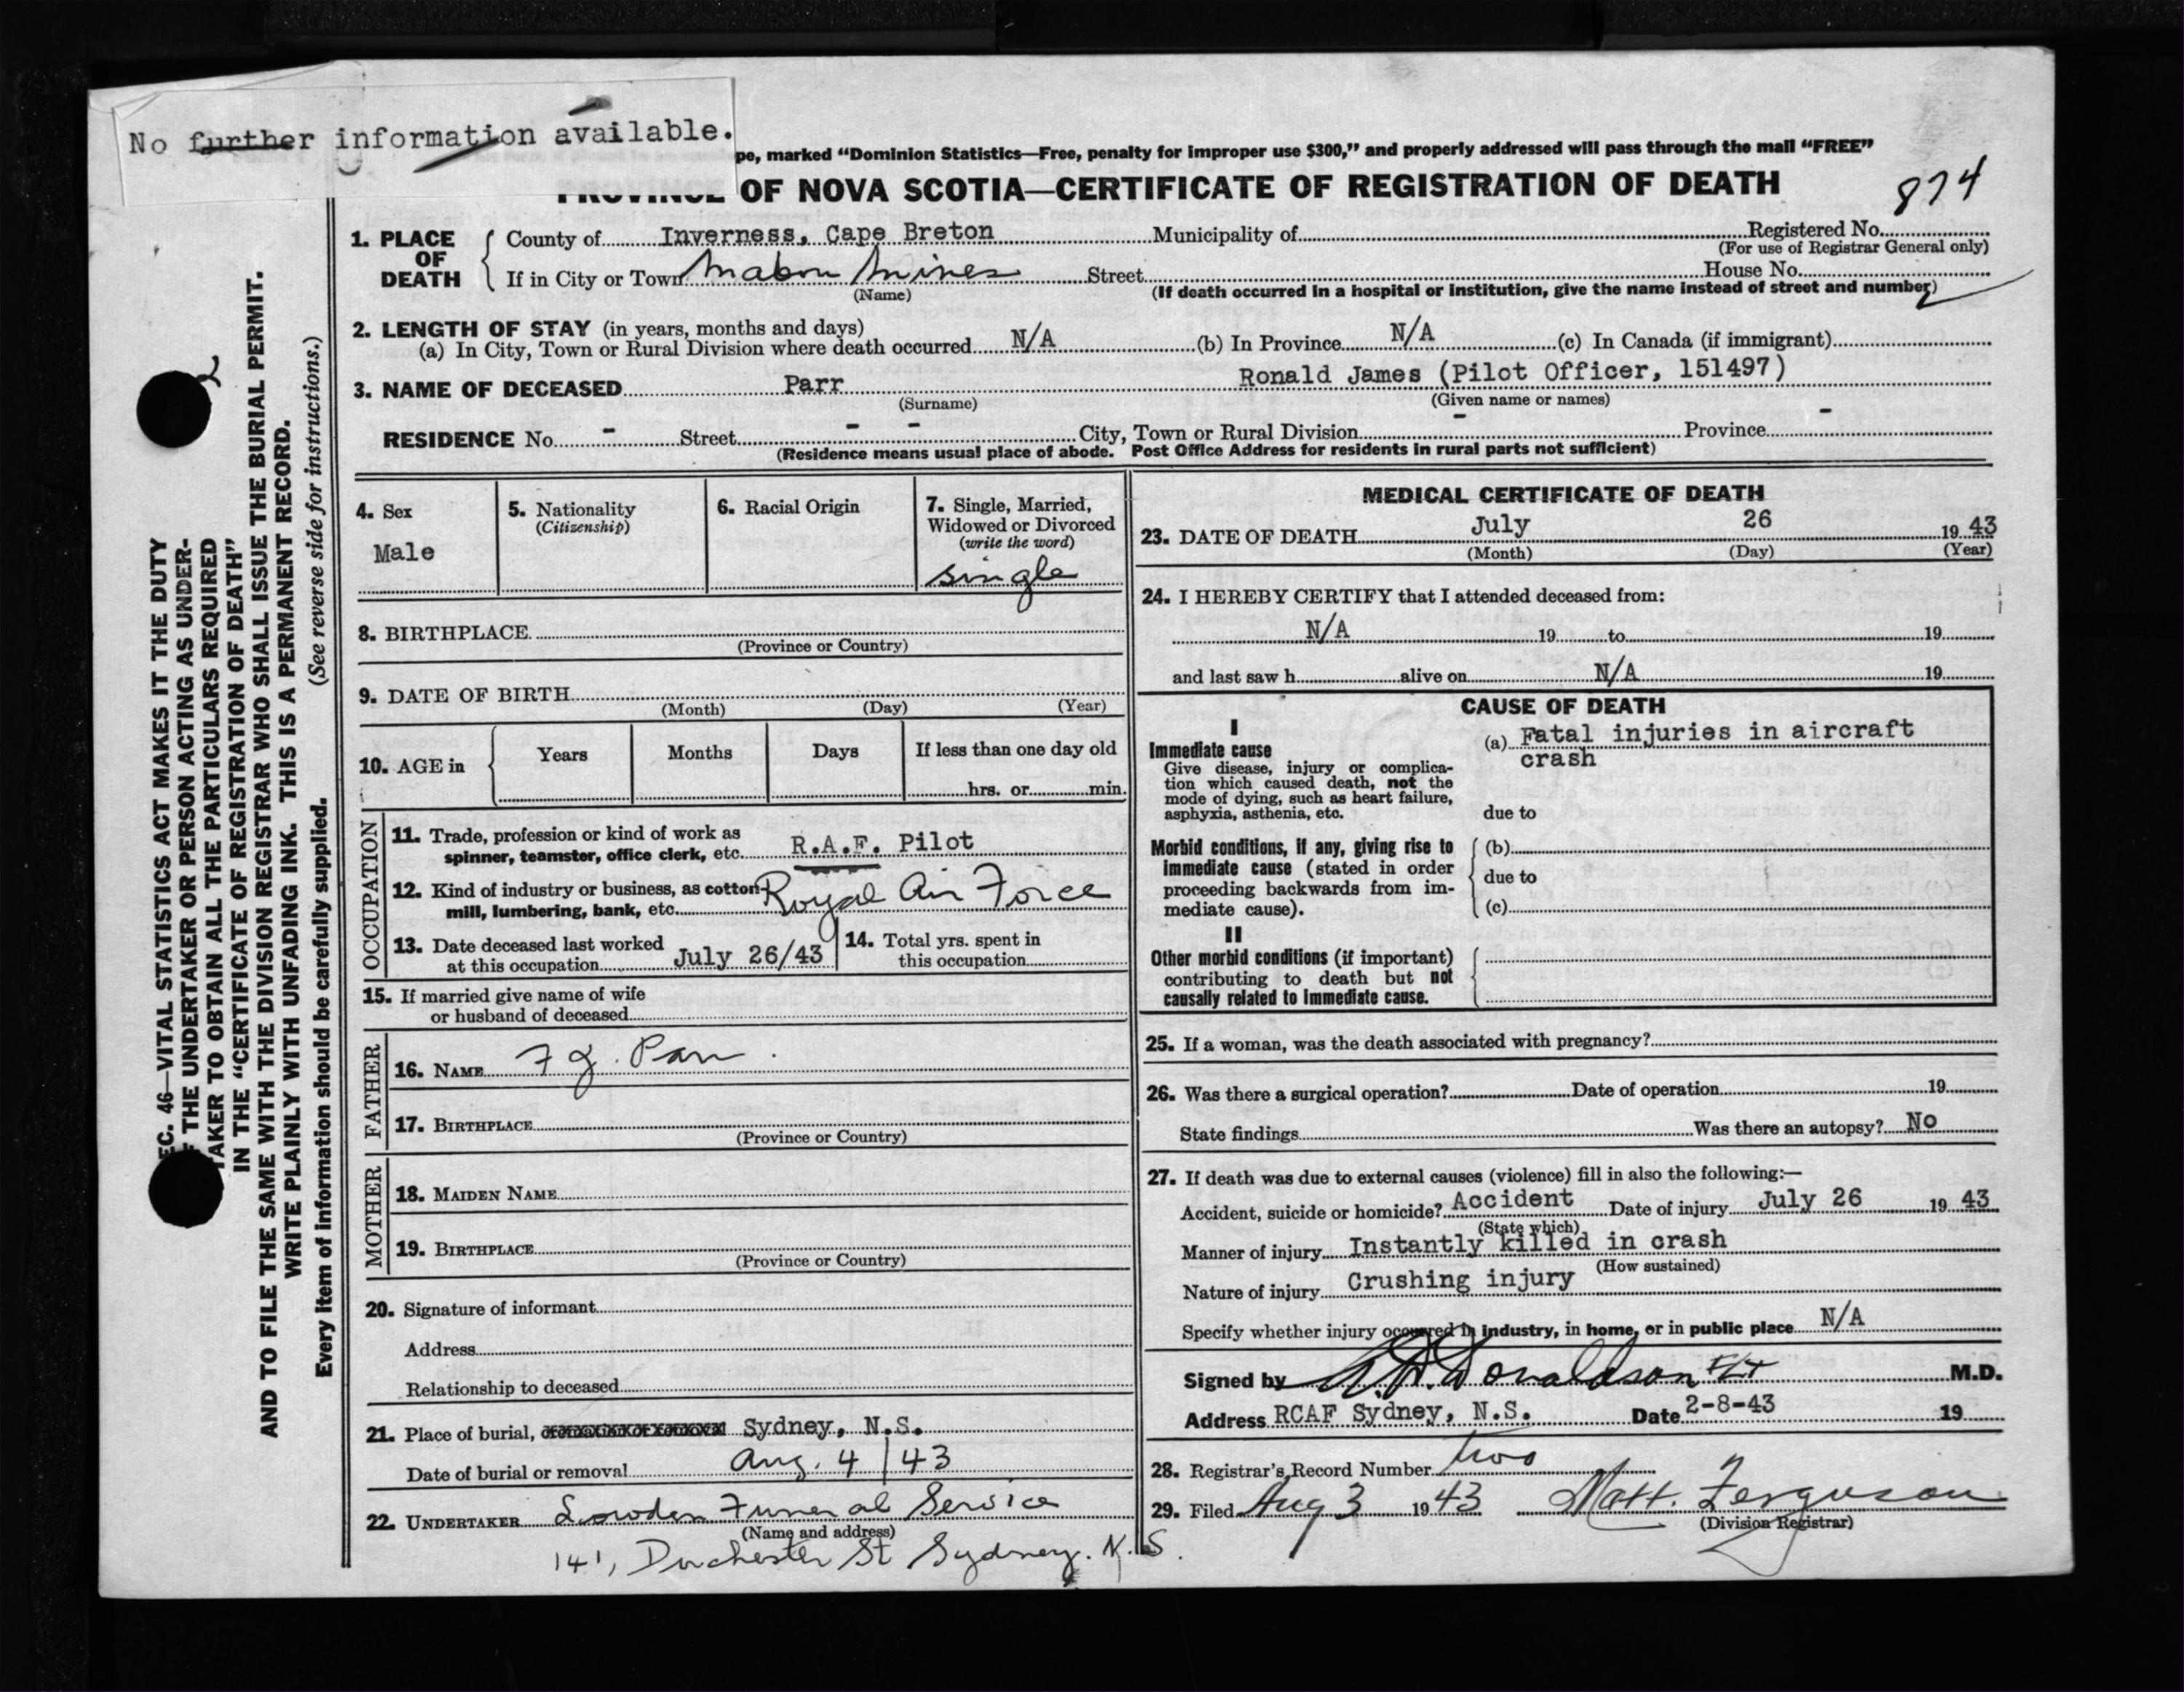 No further information available.
pe, marked “Dominion Statistics—Free, penalty for improper use $300,” and properly addressed will pass through the mail “FREE”
PROVINCE OF NOVA SCOTIA—CERTIFICATE OF REGISTRATION OF DEATH
874
1. PLACE OF DEATH
County of Inverness, Cape Breton Municipality of Registered No.
(For use of Registrar General only)
If in City or Town Mabou Mines Street House No.
(Name) (If death occurred in a hospital or institution, give the name instead of street and number)
2
2. LENGTH OF STAY (in years, months and days)
(a) In City, Town or Rural Division where death occurred N/A (b) In Province N/A (c) In Canada (if immigrant)
3. NAME OF DECEASED Parr Ronald James (Pilot Officer, 151497)
(Surname) (Given name or names)
RESIDENCE No. - Street - - City, Town or Rural Division - Province -
(Residence means usual place of abode. Post Office Address for residents in rural parts not sufficient)
4. Sex
Male
5. Nationality
(Citizenship)
6. Racial Origin
7. Single, Married,
Widowed or Divorced
(write the word)
single
8. BIRTHPLACE
(Province or Country)
9. DATE OF BIRTH
(Month) (Day) (Year)
10. AGE in Years Months Days If less than one day old
hrs. or min.
OCCUPATION
11. Trade, profession or kind of work as
spinner, teamster, office clerk, etc. R.A.F. Pilot
12. Kind of industry or business, as cotton
mill, lumbering, bank, etc. Royal Air Force
13. Date deceased last worked
at this occupation July 26/43
14. Total yrs. spent in
this occupation
15. If married give name of wife
or husband of deceased
FATHER
16. NAME F J. Parr
17. BIRTHPLACE
(Province or Country)
MOTHER
18. MAIDEN NAME
19. BIRTHPLACE
(Province or Country)
20. Signature of informant
Address
Relationship to deceased
21. Place of burial, Sydney, N.S.
Date of burial or removal Aug. 4/43
22. UNDERTAKER Lowden Funeral Service
(Name and address)
141, Dorchester St Sydney. N.S.
MEDICAL CERTIFICATE OF DEATH
23. DATE OF DEATH July 26 1943
(Month) (Day) (Year)
24. I HEREBY CERTIFY that I attended deceased from:
N/A 19 to 19
and last saw h alive on N/A 19
CAUSE OF DEATH
I
Immediate cause
Give disease, injury or complica-
tion which caused death, not the
mode of dying, such as heart failure,
asphyxia, asthenia, etc.
(a) Fatal injuries in aircraft
crash
due to
Morbid conditions, if any, giving rise to
immediate cause (stated in order
proceeding backwards from im-
mediate cause).
(b)
due to
(c)
II
Other morbid conditions (if important)
contributing to death but not
causally related to immediate cause.
25. If a woman, was the death associated with pregnancy?
26. Was there a surgical operation? Date of operation 19
State findings Was there an autopsy? No
27. If death was due to external causes (violence) fill in also the following:—
Accident, suicide or homicide? Accident Date of injury July 26 19 43
(State which)
Manner of injury Instantly killed in crash
(How sustained)
Nature of injury Crushing injury
Specify whether injury occurred in industry, in home, or in public place N/A
Signed by A.H. Donaldson F/Lt M.D.
Address RCAF Sydney, N.S. Date 2-8-43 19
28. Registrar's Record Number two
29. Filed Aug 3 1943 Matt. Ferguson
(Division Registrar)
2
EC. 46—VITAL STATISTICS ACT MAKES IT THE DUTY
THE UNDERTAKER OR PERSON ACTING AS UNDER-
TAKER TO OBTAIN ALL THE PARTICULARS REQUIRED
IN THE “CERTIFICATE OF REGISTRATION OF DEATH”
AND TO FILE THE SAME WITH THE DIVISION REGISTRAR WHO SHALL ISSUE THE BURIAL PERMIT.
WRITE PLAINLY WITH UNFADING INK. THIS IS A PERMANENT RECORD.
Every item of information should be carefully supplied. (See reverse side for instructions.)